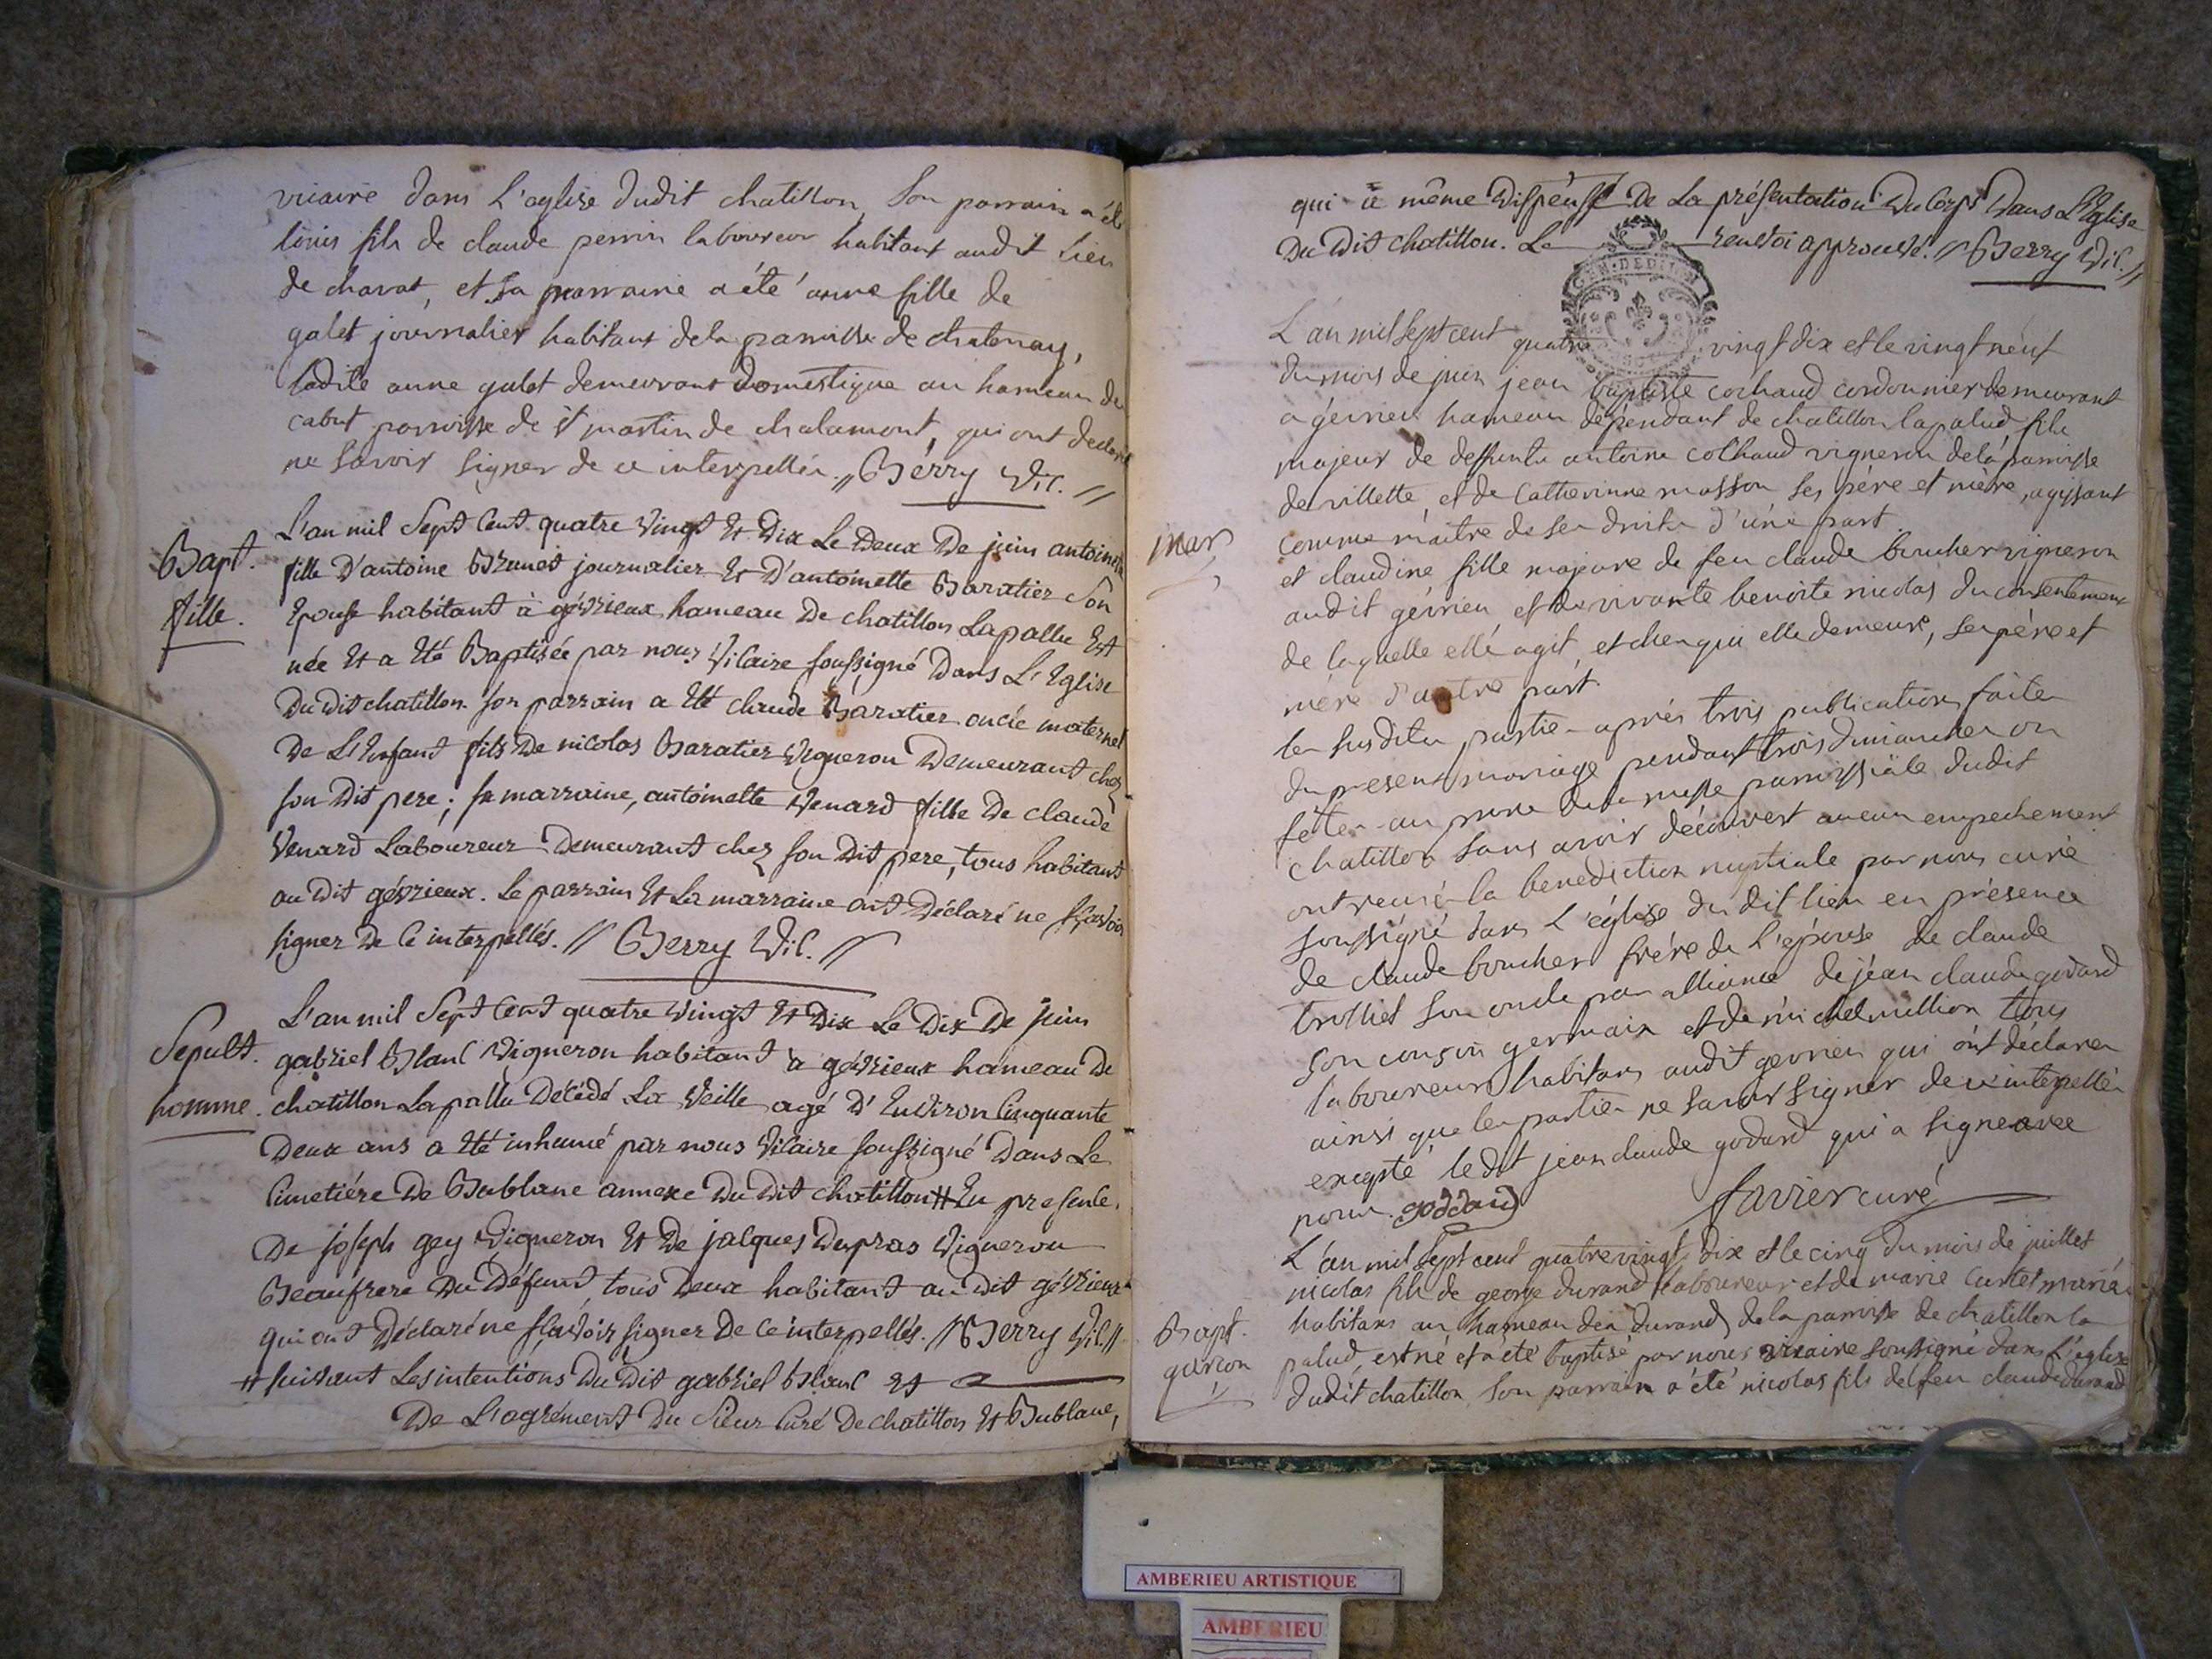 vicaire dans L'eglise dudit chatillon, Son parrain a été
louis fils de claude perrin laboureur habitant audit lieu
de chavat, et sa marraine a été anne fille de
galet journalier habitant de la parroisse de chatenay,
ladite anne galet demeurant domestique au hameau de
cabut parroisse de st martin de chalamont, qui ont declaré
ne savoir signer de ce interpellés. // Berry Vic. //
Bapt.
fille.
L'an mil Sept Cent quatre Vingt Et Dix Le Deux De juin antoinette
fille D'antoine Brunet journalier Et D'antoinette Baratier Son
Epouse habitant à gévrieux hameau De chatillon Lapallu Est
née Et a Eté Baptisée par nous Vicaire soussigné Dans L'Eglise
Du Dit chatillon. son parrain a Eté claude Baratier oncle maternel
De L'Enfant fils De nicolas Baratier Vigneron Demeurant chez
son Dit pere; sa marraine, antoinette Venard fille De claude
Venard Laboureur Demeurant chez son Dit pere, tous habitant
au Dit gévrieux. Le parrain Et La marraine ont Déclaré ne sçavoir
signer De Ce interpellés. // Berry Vic. //
Sepult.
homme.
L'an mil Sept Cent quatre Vingt Et Dix Le Dix De juin
gabriel Blanc Vigneron habitant à gévrieux hameau De
chatillon Lapallu Décédé La Veille agé D'Environ Cinquante
Deux ans a Eté inhumé par nous Vicaire soussigné Dans Le
Cimetiére De Bublane annexe Du Dit chatillon # En presence
De joseph gey Vigneron Et De jacques Dupras Vigneron
Beaufrere Du Défunt, tous Deux habitant au Dit gévrieux
qui ont Déclaré ne sçavoir signer De Ce interpellés. // Berry Vic. //
# suivant Les intentions Du Dit gabriel Blanc Et
De L'agrément Du Sieur Curé De chatillon Et Bublane,
qui a même Dispensé De La présentation Du Corps Dans L'Eglise
Du Dit chatillon. Le renvoi approuvé. // Berry Vic. //
GEN. DE DIJON
mar
L'an mil sept cent quatre vingt dix et le vingt neuf
du mois de juin jean baptiste cochaud cordonnier demeurant
a gevrieu hameau dépendant de chatillon lapalud fils
majeur de deffunts antoine cochaud vigneron de la parroisse
de villette, et de Catherinne masson ses pére et mère, agissant
comme maitre de ses droits d'une part.
et claudine fille majeure de feu claude boucher vigneron
audit gévrieu, et de vivante benoite nicolas du consentement
de laquelle elle agit, et chez qui elle demeure, ses pére et
mére d'autre part.
les susdites parties aprés trois publications faites
du present mariage pendant trois dimanches ou
fêtes au prone de la messe parroissiale dudit
chatillon sans avoir découvert aucun empechement
ont reçu la benediction nuptiale par nous curé
soussigné dans L'église du dit lieu en présence
de claude boucher frére de L'épouse de claude
trolliet son oncle par alliance de jean claude godard
son cousin germain et de michel million tous
laboureurs habitans audit gevrieu qui ont déclaré
ainsi que les parties ne savoir signer de ce interpellés
excepté ledit jean claude godard qui a signé avec
nous. goddard
favier curé
Bapt.
garçon
L'an mil sept cent quatre vingt dix et le cinq du mois de juillet
nicolas fils de george durand laboureur et de marie Curtet mariés
habitans au hameau des durand de la parroisse de chatillon la
palud, est né et a été baptisé par nous vicaire soussigné dans L'eglise
dudit chatillon, son parrain a été nicolas fils de feu claude durand
AMBERIEU ARTISTIQUE
AMBERIEU